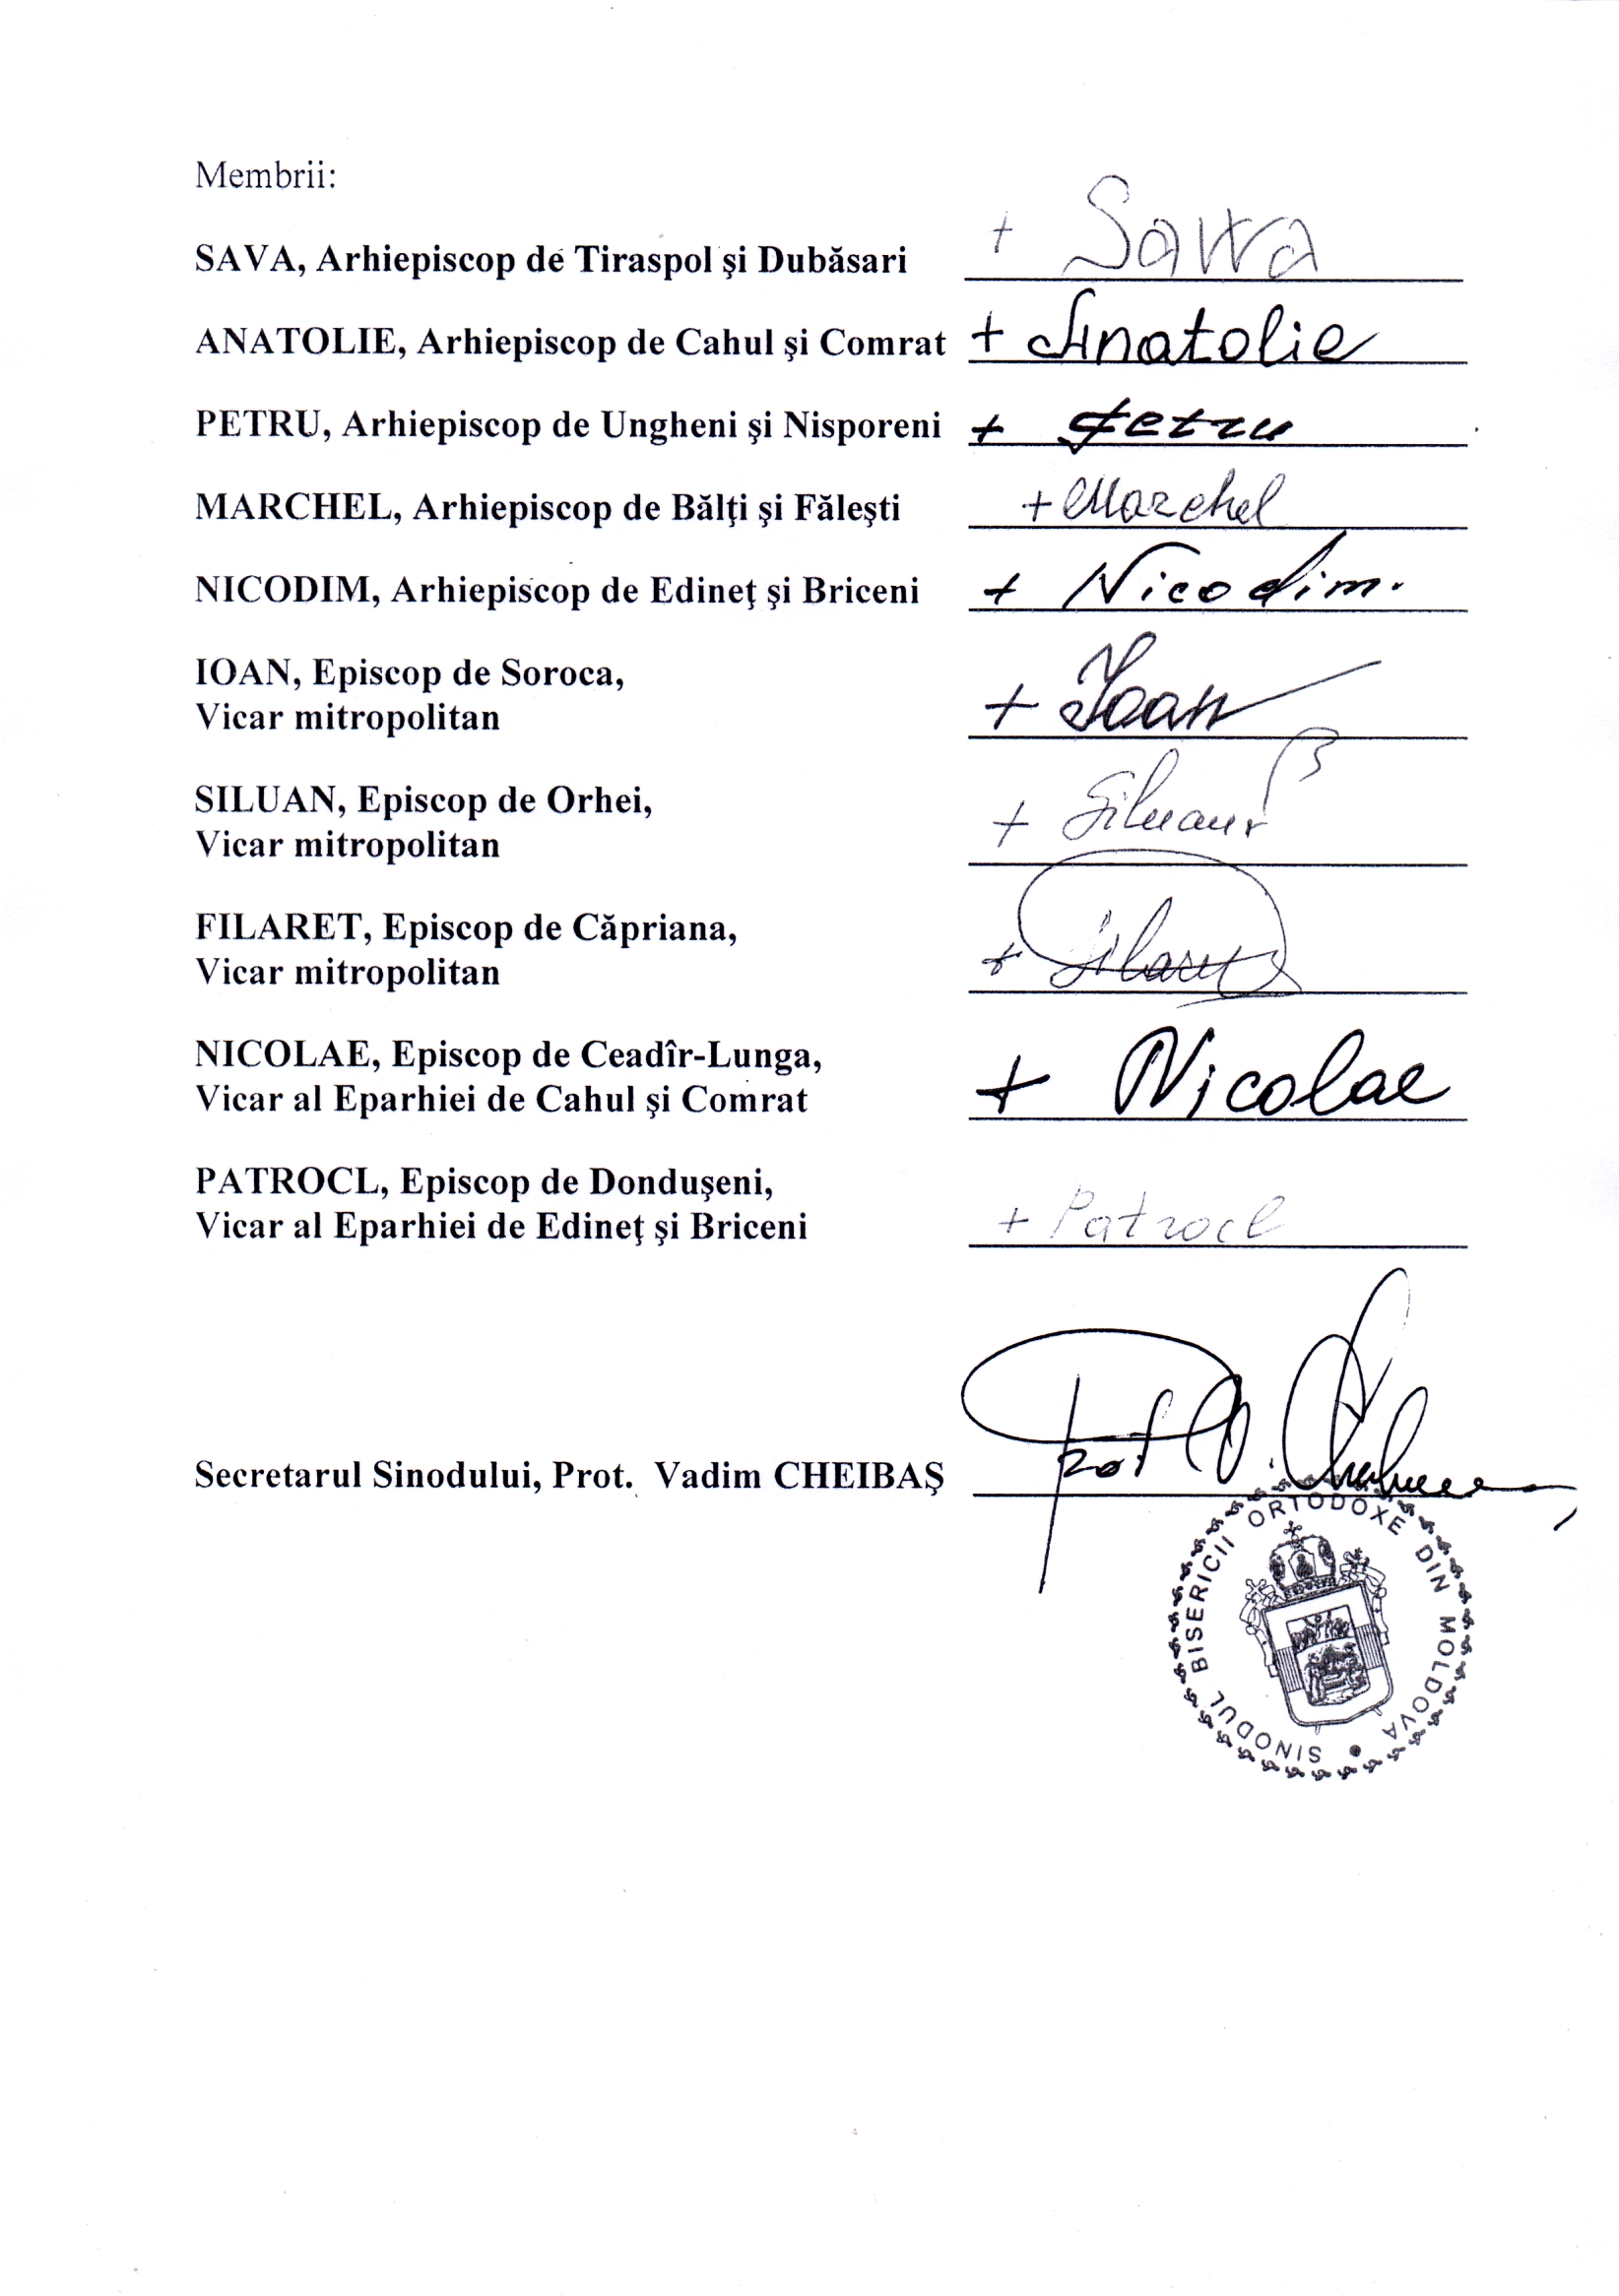 Membrii:
SAVA, Arhiepiscop de Tiraspol şi Dubăsari + Sawa
ANATOLIE, Arhiepiscop de Cahul şi Comrat + Anatolie
PETRU, Arhiepiscop de Ungheni şi Nisporeni + Petru
MARCHEL, Arhiepiscop de Bălţi şi Făleşti + Marchel
NICODIM, Arhiepiscop de Edineţ şi Briceni + Nicodim.
IOAN, Episcop de Soroca,
Vicar mitropolitan + Ioan
SILUAN, Episcop de Orhei,
Vicar mitropolitan + Siluan
FILARET, Episcop de Căpriana,
Vicar mitropolitan + Filaret
NICOLAE, Episcop de Ceadîr-Lunga,
Vicar al Eparhiei de Cahul şi Comrat + Nicolae
PATROCL, Episcop de Donduşeni,
Vicar al Eparhiei de Edineţ şi Briceni + Patrocl
Secretarul Sinodului, Prot. Vadim CHEIBAŞ Prot V.
SINODUL BISERICII ORTODOXE DIN MOLDOVA